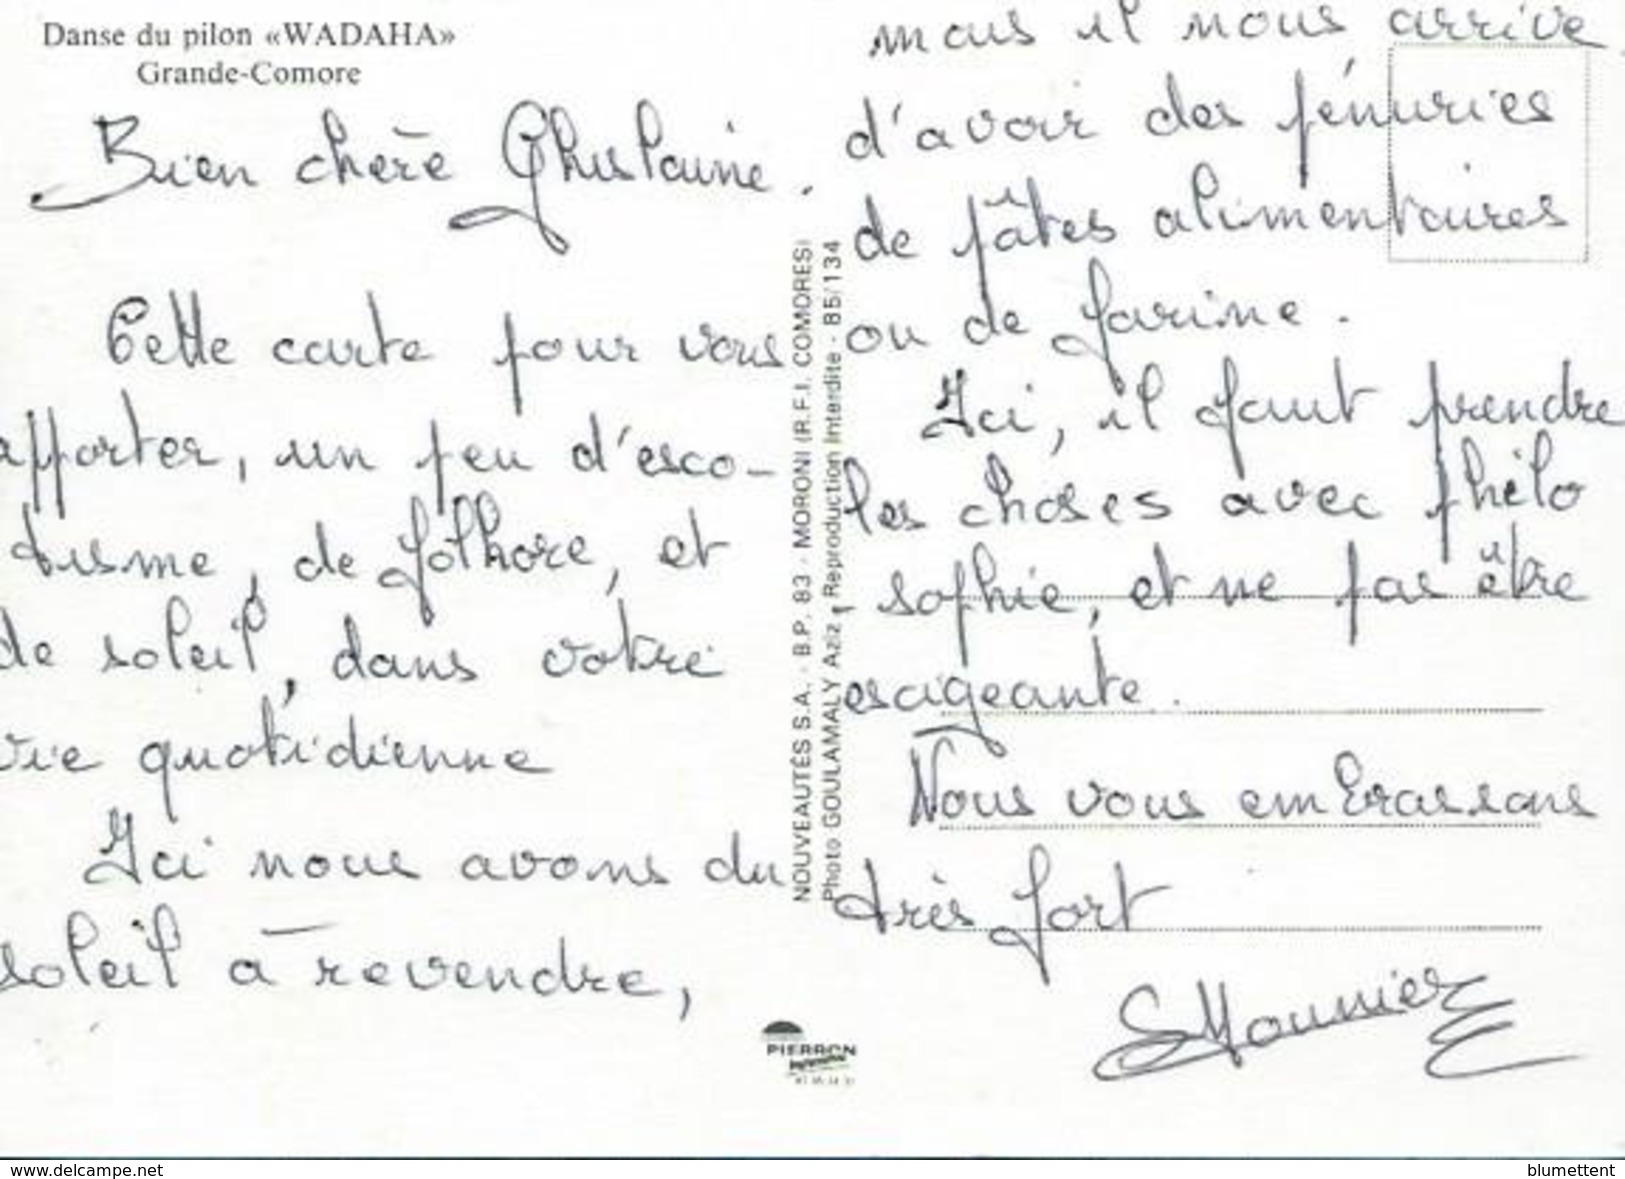 Danse du pilon «WADAHA»
Grande-Comore
Bien chère Ghislaine.
Cette carte pour vous
apporter, un peu d'esco-
tisme, de folhore, et
de soleil, dans votre
vie quotidienne
Ici nous avons du
soleil à revendre,
NOUVEAUTÉS S.A. - B.P. 83 - MORONI (R.F.I. COMORES)
Photo GOULAMALY Aziz - Reproduction Interdite - B5/134
mais il nous arrive
d'avoir des pénuries
de pâtes alimentaires
ou de farine.
Ici, il faut prendre
les choses avec philo
- sophie, et ne pas être
escigeante.
Nous vous embrassons
très fort
SMounier
PIERRON
www.delcampe.net
blumettent